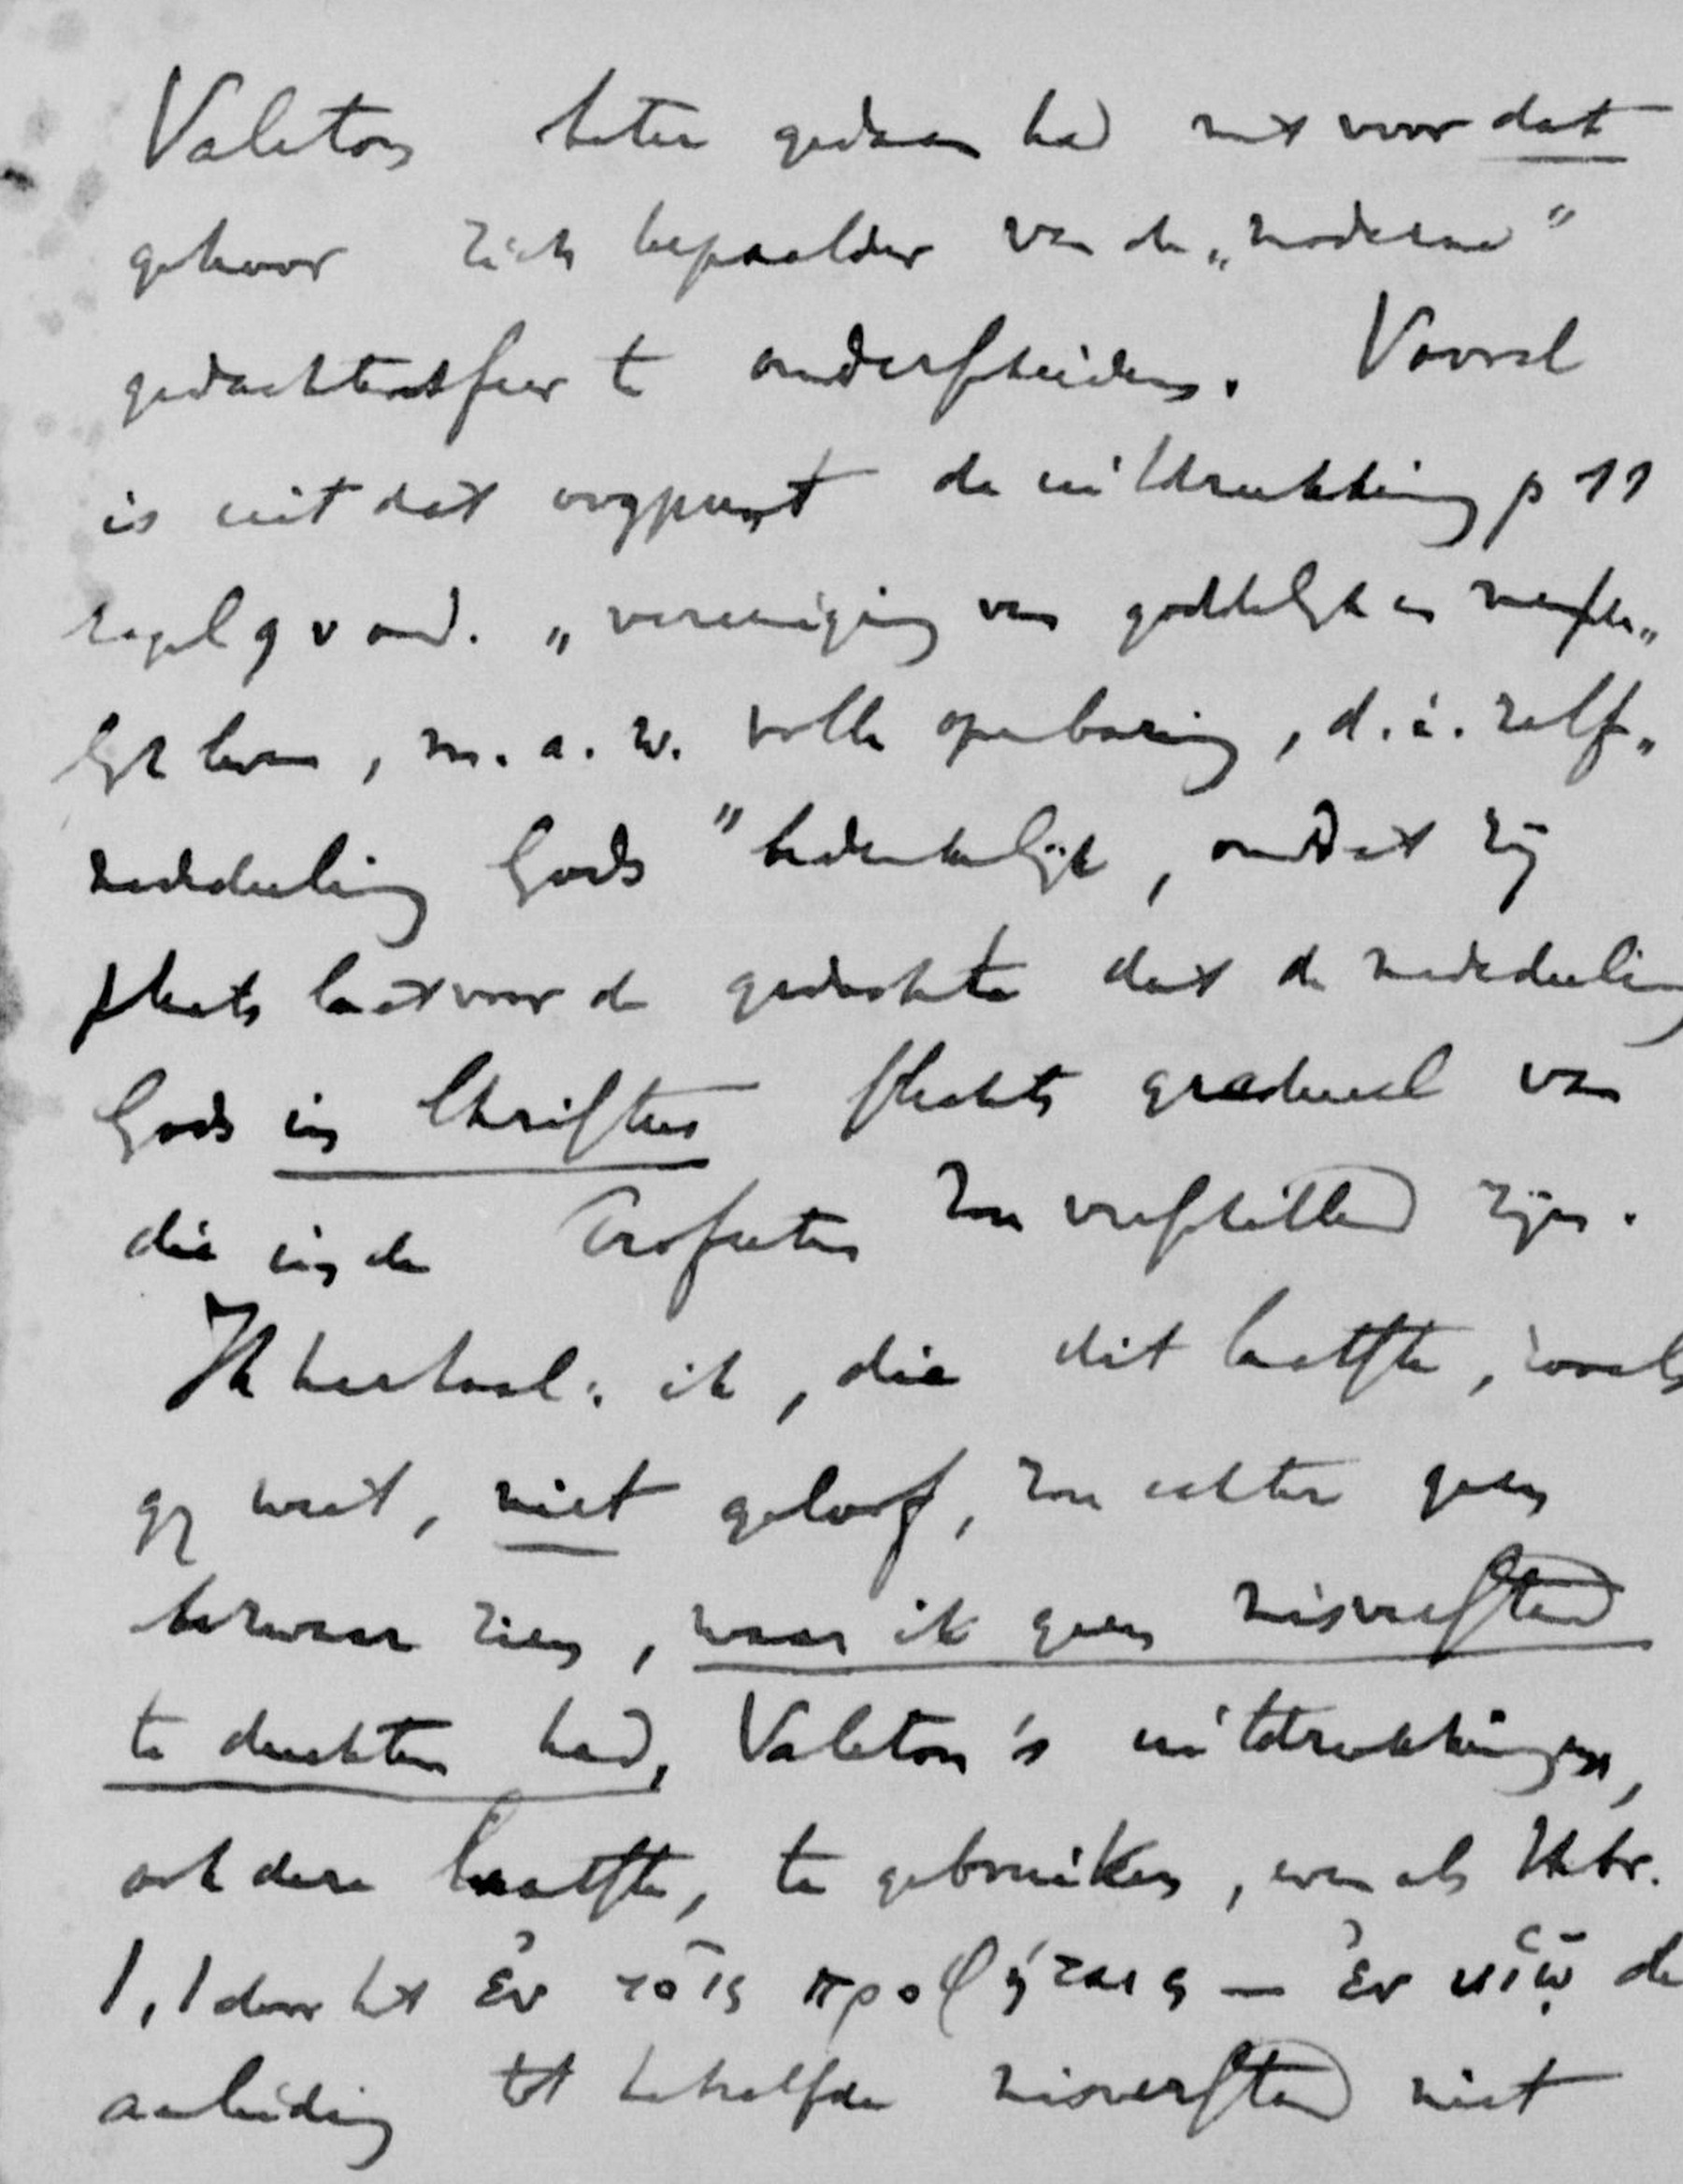 Valeton beter gedaan had met voor dat
gehoor zich bepaalder van de „moderne”
gedachtensfeer te onderscheiden. Vooral
is uit dat oogpunt de uitdrukking p 11
regel 9 v ond. „vereeniging van goddelijk en mensche„
lijk leven, m. a. w. volle openbaring, d. i. zelf„
mededeeling Gods” bedenkelijk, omdat zij
plaats laat voor de gedachte dat de mededeeling
Gods in Christus slechts gradueel van
die in de Profeten zou verschillend zijn.
Ik herhaal: ik, die dit laatste, zooals
gij weet, niet geloof, zou echter geen
bezwaar zien, waar ik geen misverstand
te duchten had, Valeton's uitdrukkingen,
ook deze laatste, te gebruiken, even als Hebr.
1, 1 door het ἐν τοῖς προφήταις — ἐν υἱῷ de
aanleiding tot hetzelfde misverstand niet